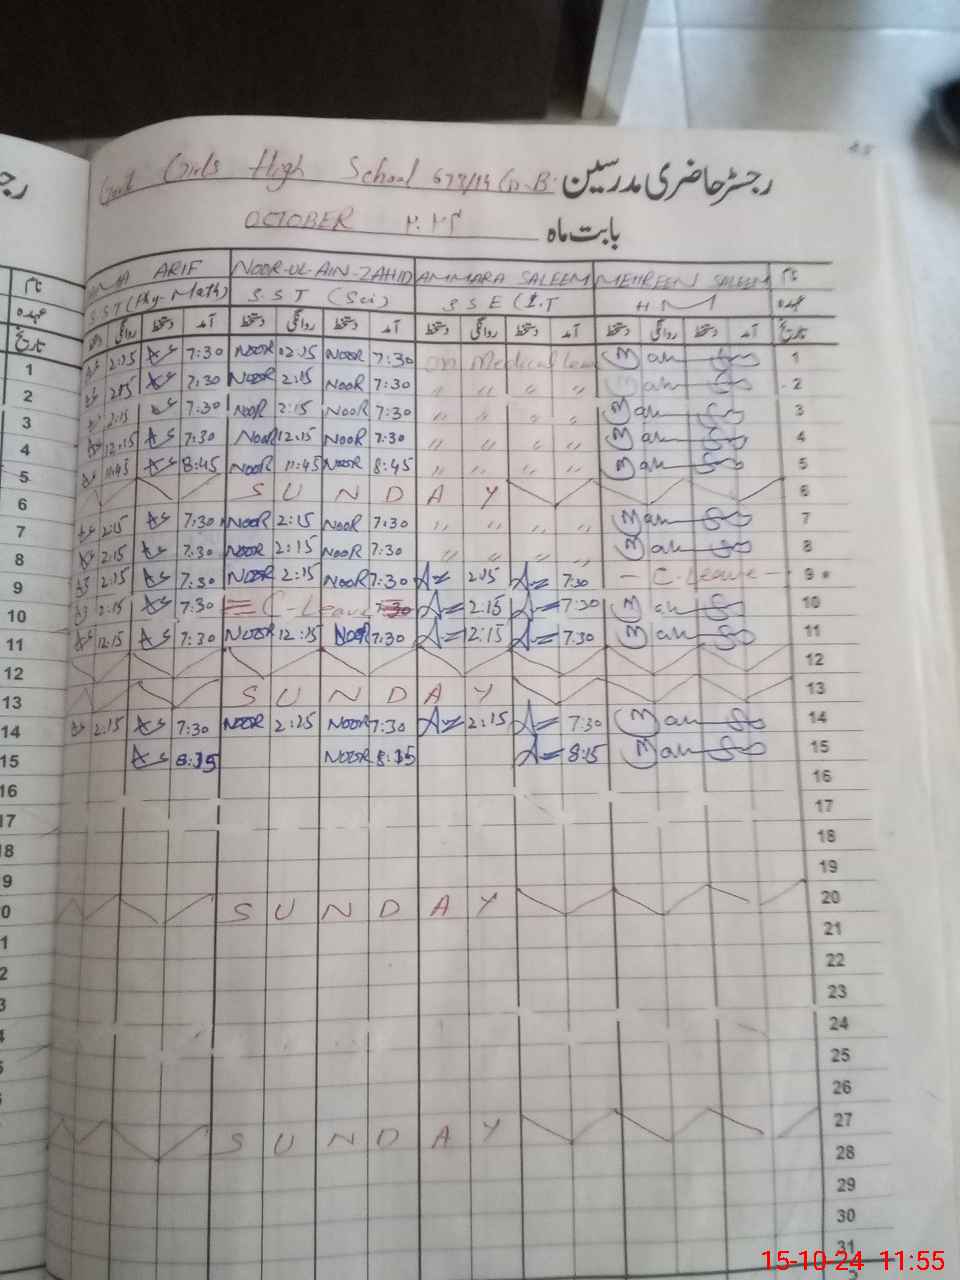 Govt Girls High School 673/14 G.B. رجسٹر حاضری مدرسین
OCTOBER ۲۰۲۴ بابت ماہ
ARIF NOOR-UL-AIN-ZAHID AMMARA SALEEM MEHREEN SALEEM نام
SST (Phy-Math) SST (Sci) SSE (I.T HM عہدہ
دستخط روانگی دستخط آمد دستخط روانگی دستخط آمد دستخط روانگی دستخط آمد دستخط روانگی دستخط آمد تاریخ
2:15 7:30 NOOR 02:15 NOOR 7:30 on Medical leave 1
2:15 7:30 NOOR 2:15 NOOR 7:30 〃 〃 〃 〃 2
2:15 7:30 NOOR 2:15 NOOR 7:30 〃 〃 〃 〃 3
12:15 7:30 NOOR 12:15 NOOR 7:30 〃 〃 〃 〃 4
11:45 8:45 NOOR 11:45 NOOR 8:45 〃 〃 〃 〃 5
S U N D A Y 6
2:15 7:30 NOOR 2:15 NOOR 7:30 〃 〃 〃 〃 7
2:15 7:30 NOOR 2:15 NOOR 7:30 〃 〃 〃 〃 8
2:15 7:30 NOOR 2:15 NOOR 7:30 2:15 7:30 - C-Leave - 9
2:15 7:30 C-Leave 7:30 2:15 7:30 10
12:15 7:30 NOOR 12:15 NOOR 7:30 2:15 7:30 11
12
S U N D A Y 13
2:15 7:30 NOOR 2:15 NOOR 7:30 2:15 7:30 14
8:15 NOOR 8:15 8:15 15
16
17
18
19
S U N D A Y 20
21
22
23
24
25
26
S U N D A Y 27
28
29
30
31
15-10-24 11:55